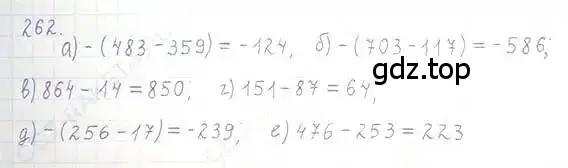 262.
а) -(483-359) = -124, б) -(703-117) = -586;
gdz.top
в) 864-14 = 850, г) 151-87 = 64,
д) -(256-17) = -239, е) 476-253 = 223